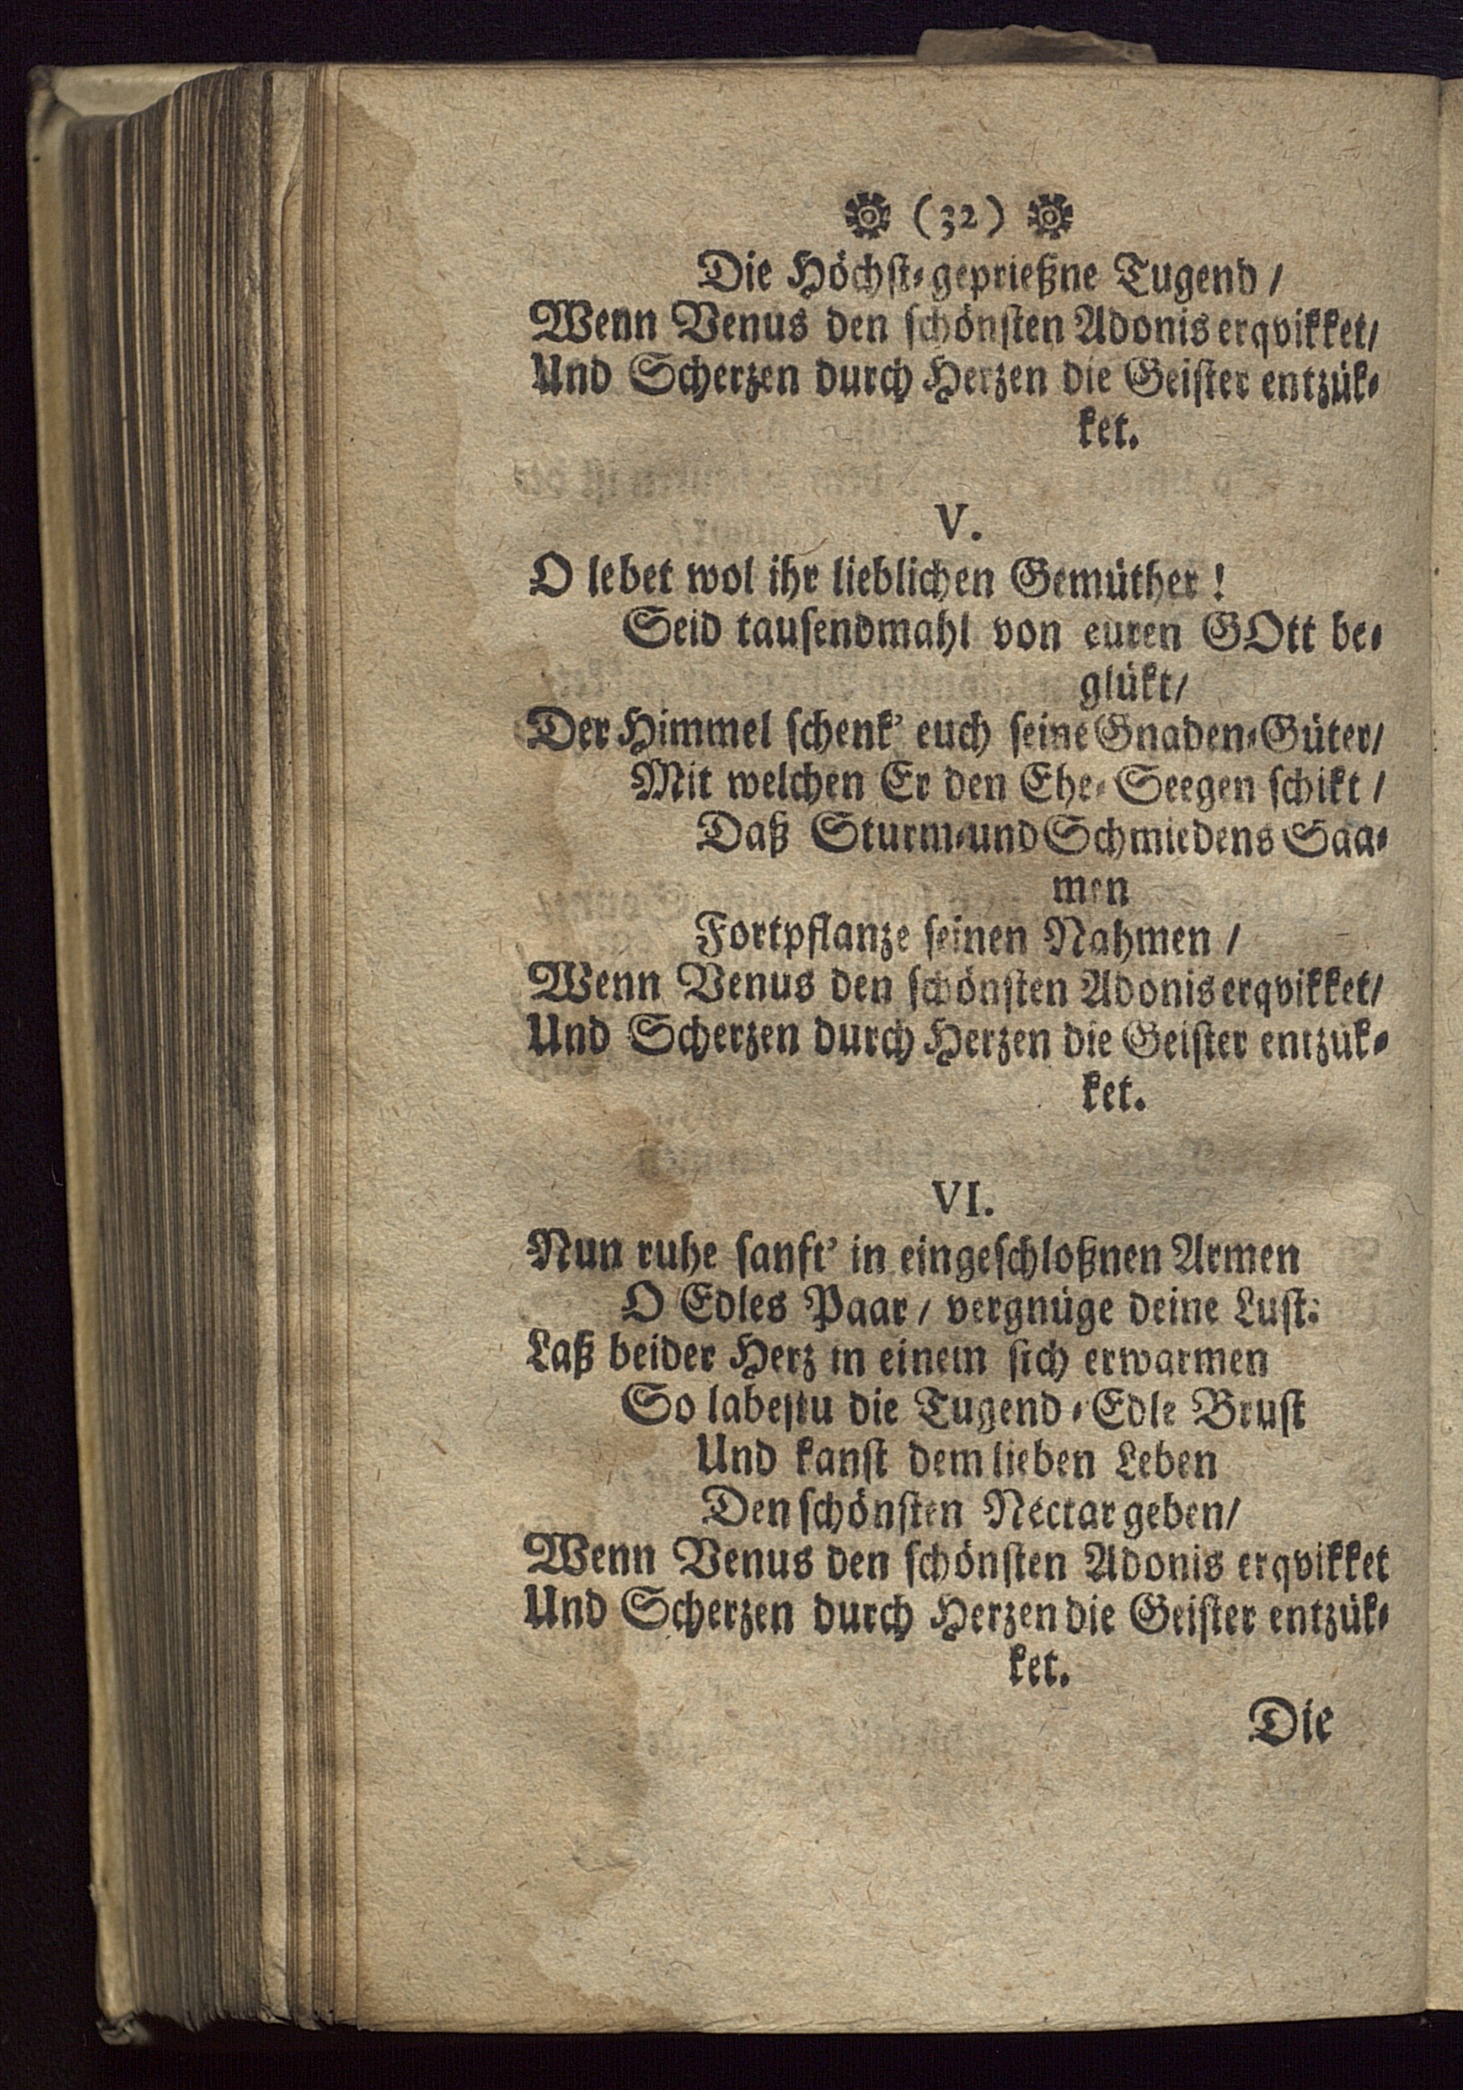 (32)
Die Höchst-geprießne Tugend /
Wenn Venus den schönsten Adonis erqvikket/
Und Scherzen durch Herzen die Geister entzük-
ket.
V.
O lebet wol ihr lieblichen Gemüther !
Seid tausendmahl von euren GOtt be-
glükt/
Der Himmel schenk' euch seine Gnaden-Güter/
Mit welchen Er den Ehe-Seegen schikt /
Daß Sturm-und Schmiedens Saa-
men
Fortpflanze seinen Nahmen /
Wenn Venus den schönsten Adonis erqvikket/
Und Scherzen durch Herzen die Geister entzük-
ket.
VI.
Nun ruhe sanft' in eingeschloßnen Armen
O Edles Paar / vergnüge deine Lust:
Laß beider Herz in einem sich erwarmen
So labestu die Tugend-Edle Brust
Und kanst dem lieben Leben
Den schönsten Nectar geben/
Wenn Venus den schönsten Adonis erqvikket
Und Scherzen durch Herzen die Geister entzük-
ket.
Die